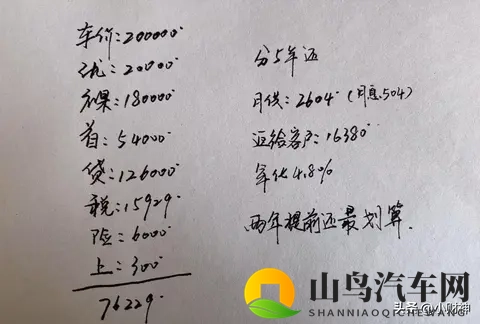 车价:200000.
优:20000.
裸:180000.
首:54000
贷:126000
税:15929.
险:6000
上:300
76229.
分5年还
月供:2604.(月息.504)
返给客户:16380
年化4.8%
两年提前还最划算.
山鸟汽车网
SHANNIAOQICHEWANG